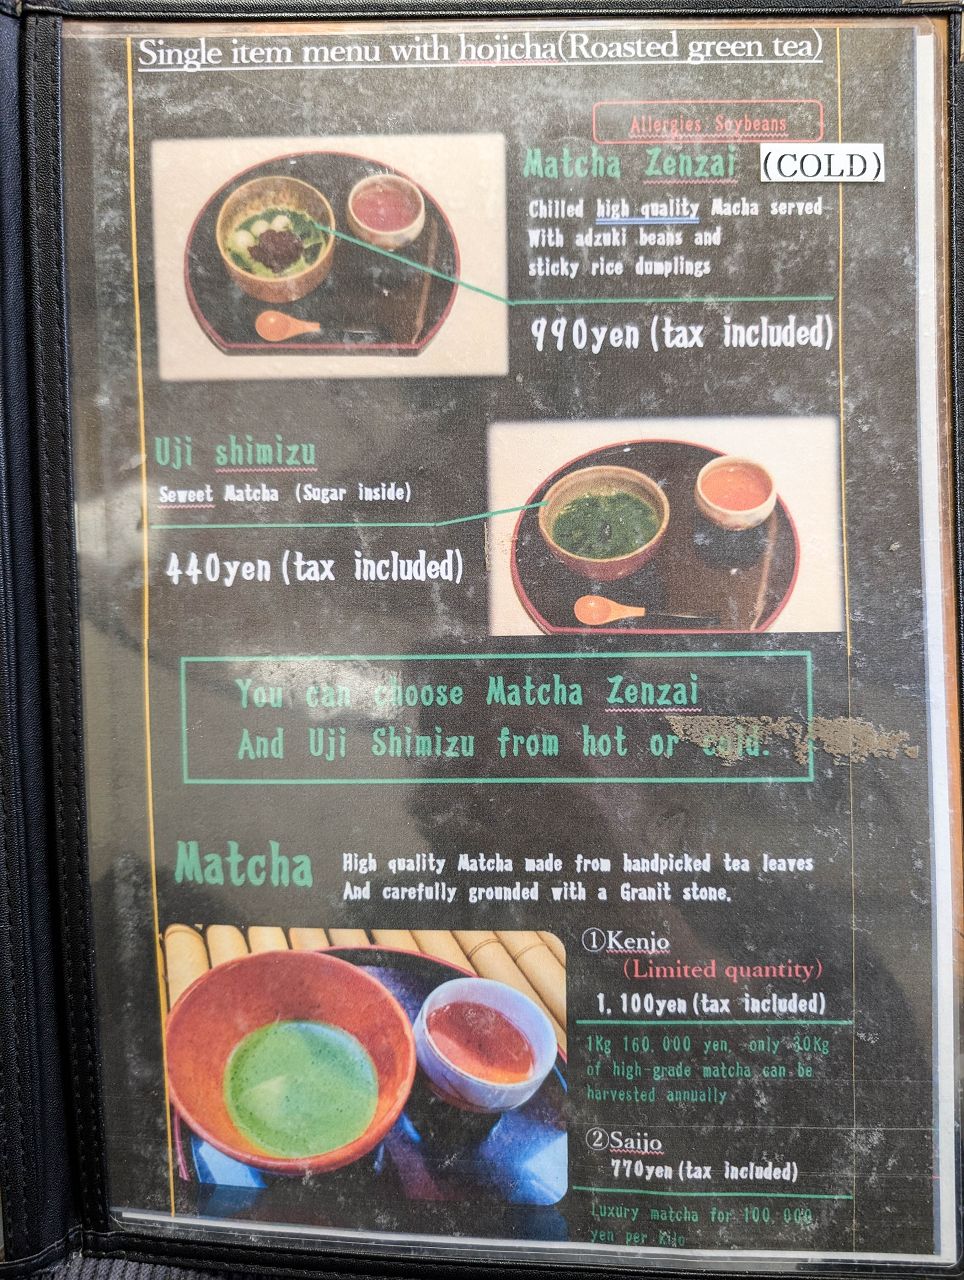 Single item menu with hojicha(Roasted green tea)
Allergies Soybeans
Matcha Zenzai (COLD)
Chilled high quality Macha served
With adzuki beans and
sticky rice dumplings
990yen (tax included)
Uji shimizu
Seweet Matcha (Sugar inside)
440yen (tax included)
You can choose Matcha Zenzai
And Uji Shimizu from hot or cold.
Matcha
High quality Matcha made from handpicked tea leaves
And carefully grounded with a Granit stone.
①Kenjo
(Limited quantity)
1,100yen (tax included)
1Kg 160,000 yen, only Kg
of high-grade matcha can be
harvested annually
②Saijo
770yen (tax included)
Luxury matcha for 100,000
yen per kilo